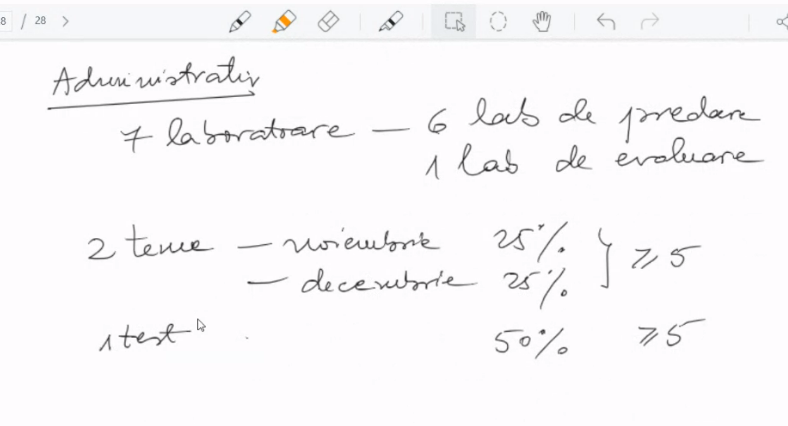 8 / 28
Administrativ
7 laboratoare — 6 lab de predare
1 lab de evaluare
2 teme — noiembrie 25% } ≥ 5
— decembrie 25%
1 test 50% ≥ 5